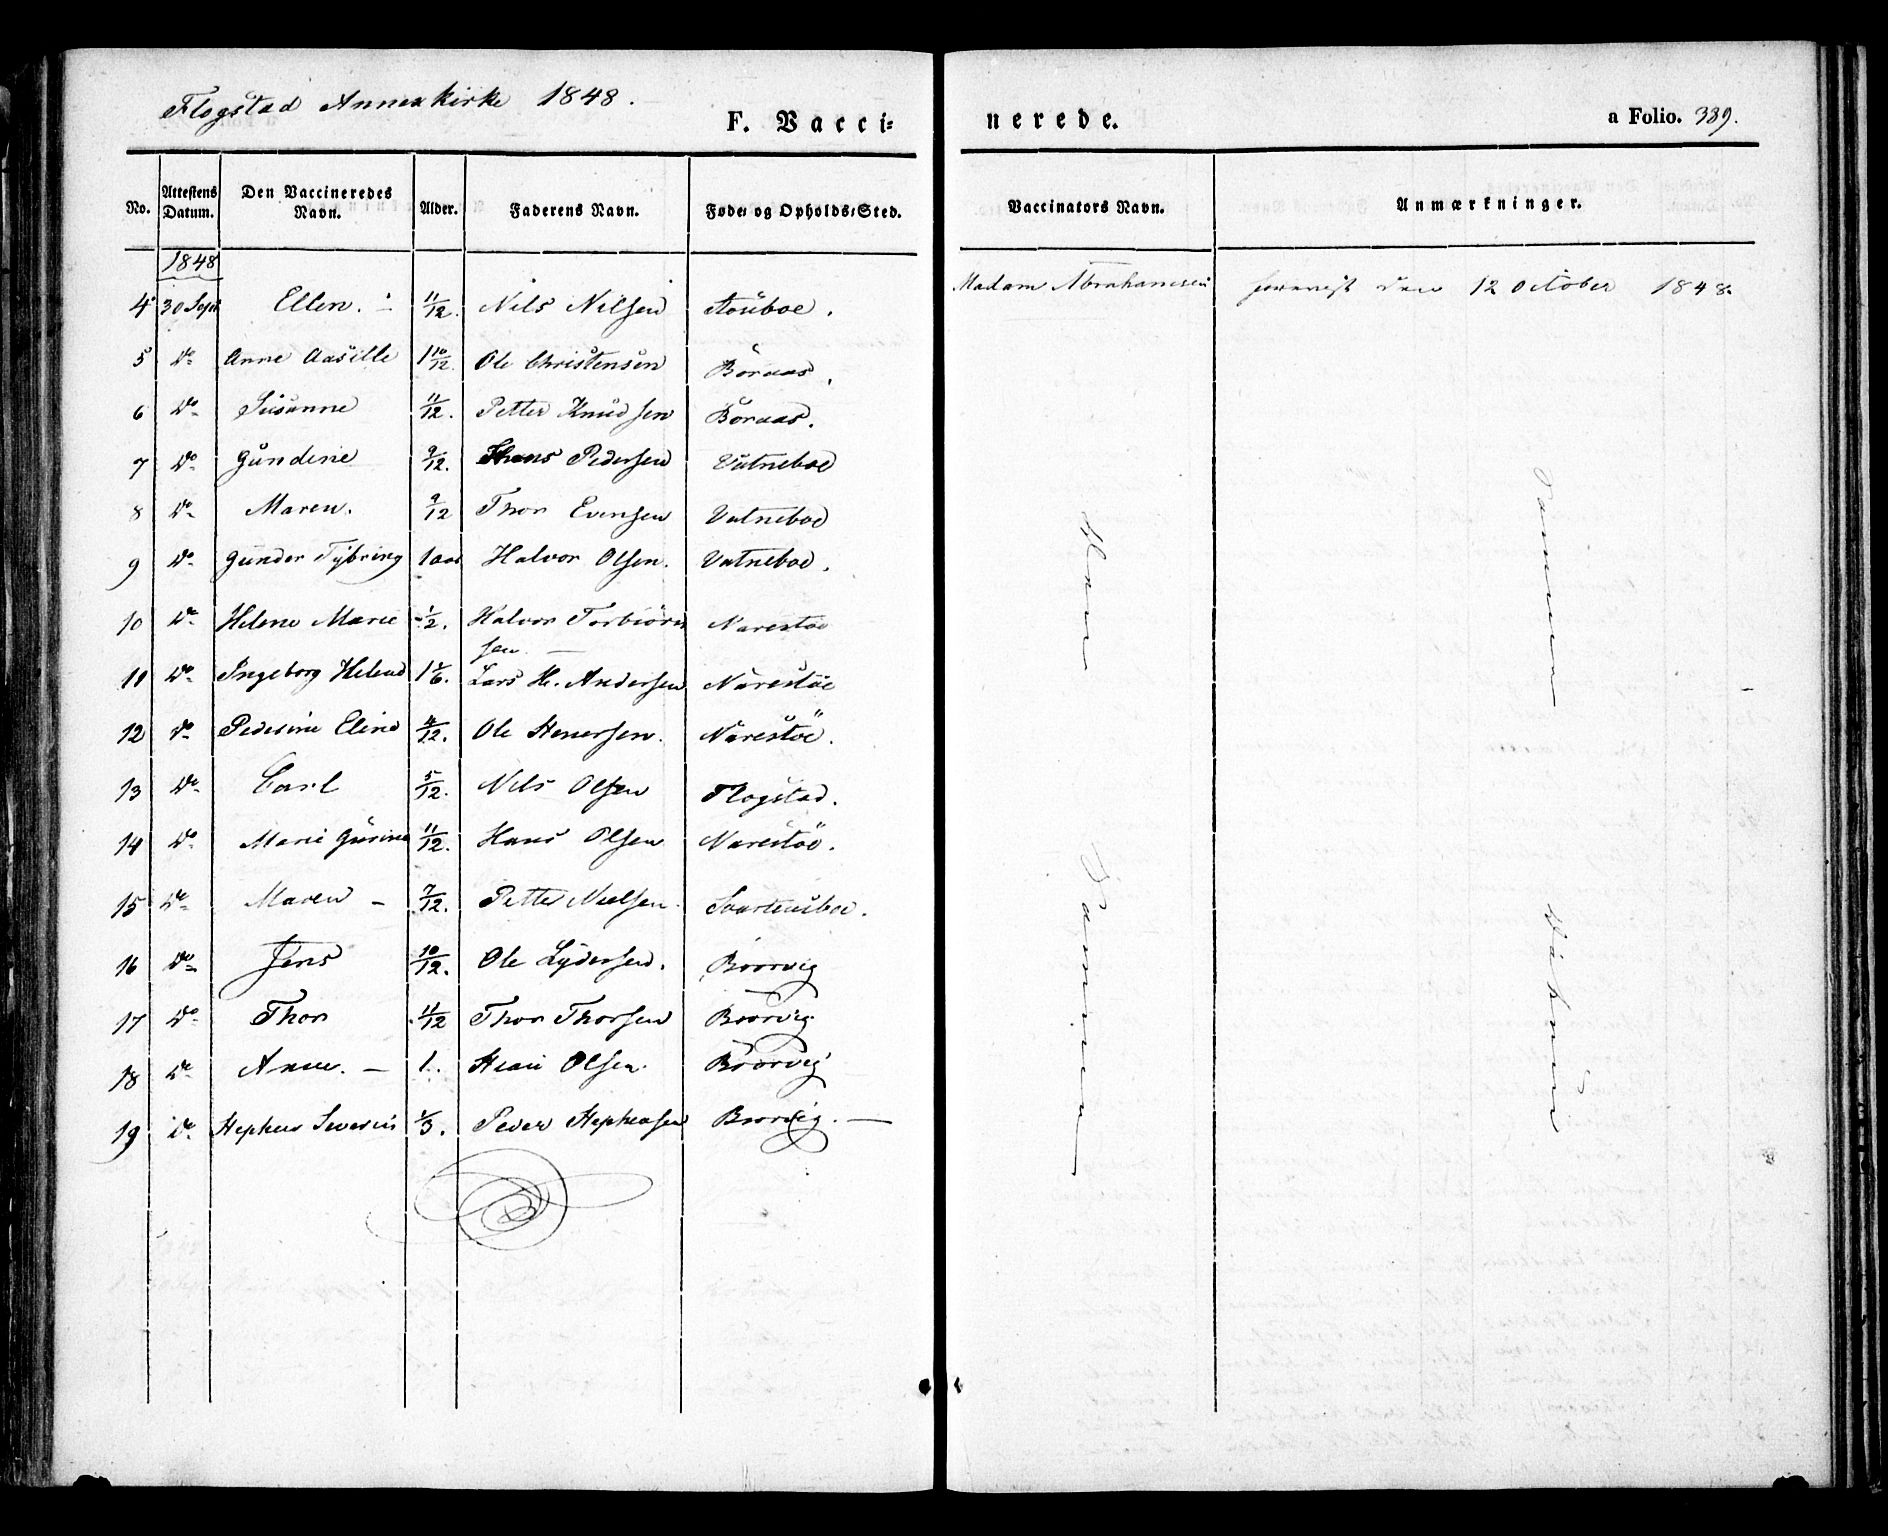 Flogstad Annexkirke 1848.
F. Vacci=
nerede.
a Folio. 389.
No. Attestens Datum. Den Vaccineredes Navn. Alder. Faderens Navn. Føde- og Opholds-Sted. Vaccinators Navn. Anmærkninger.
1848
4 30 Sept Ellen. 11/12. Nils Nilsen Madam Abrahamsen den 12 October 1848.
5 do Anne Aasille 1 10/12. Ole Christensen Boraas.
6 do Susanne 11/12. Petter Knudsen Boraas.
7 do Gundine 9/12. Pedersen Vatneboe
8 do Maren. 9/12 Thor Evensen Vatneboe
9 do Gunder Tybring 1 aar Halvor Olsen. Vatneboe.
10 do Helene Marie 1/2. Halvor Torbiörn Narestöe
sen.
11 do Ingeborg Helene Lars H. Andersen Narestöe
12 do Pedesine Eline 4/12. Ole Narestöe.
13 do Carl 5/12. Nils Olsen Flogstad.
14 do Marie Gurine 11/12. Hans Olsen Narestöe.
15 do Maren 7/12. Petter Nielsen
16 do Jens 10/12. Ole Lydersen. Boorvig
17 do Thor 11/12 Thor Thorsen Boorvig
18 do Anne. 1. Olsen. Boorvig
19 do Severin 1/3. Peder Stephensen Boorvig.
Samme